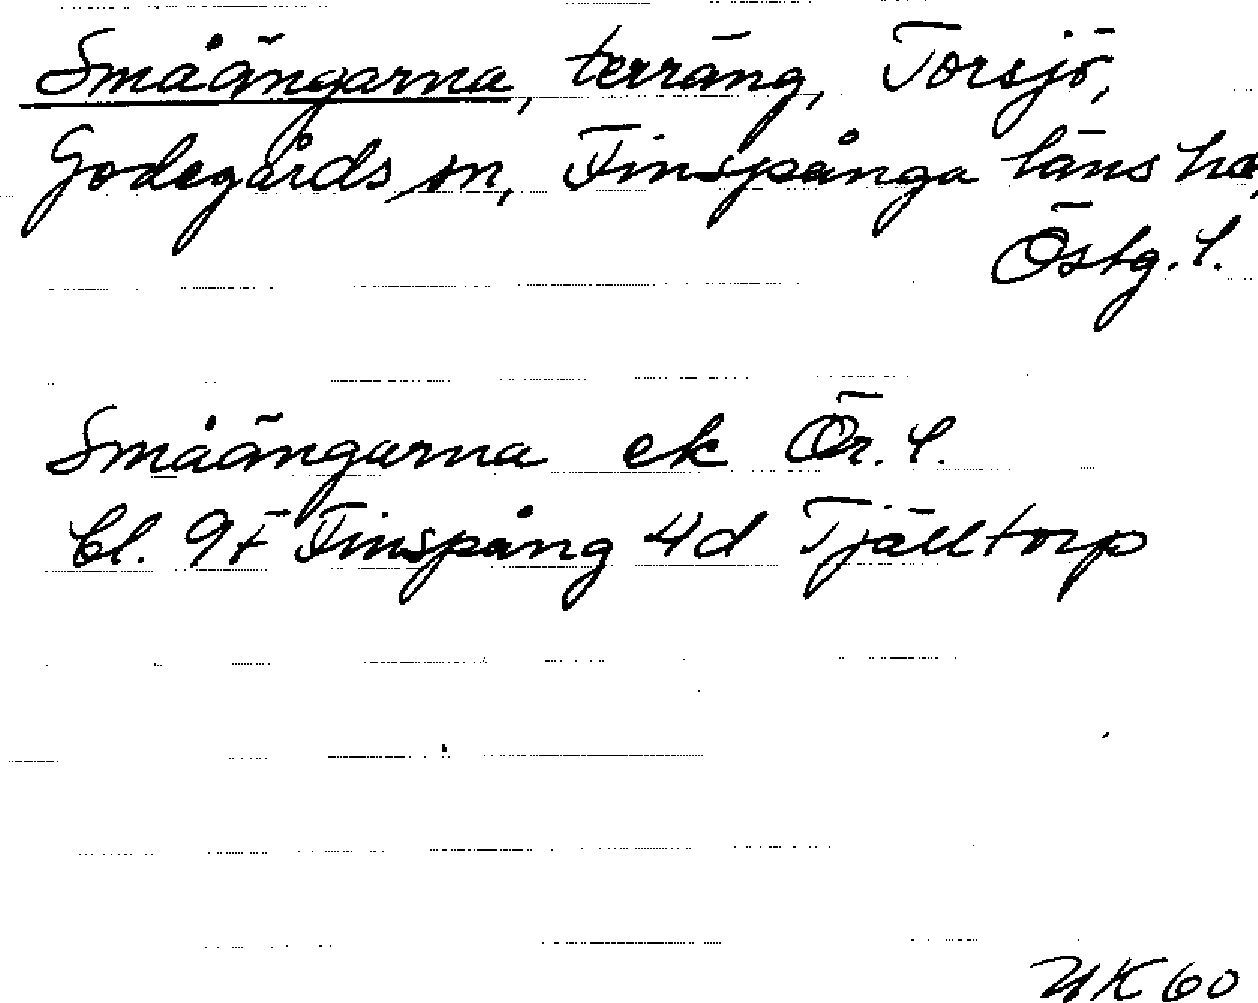 Småängarna, terräng, Torsjö,
Godegårds sn, Finspånga läns hd,
Östg. l.
Småängarna ek Ör. l.
bl. 9F Finspång 4d Tjälltorp
UK 60